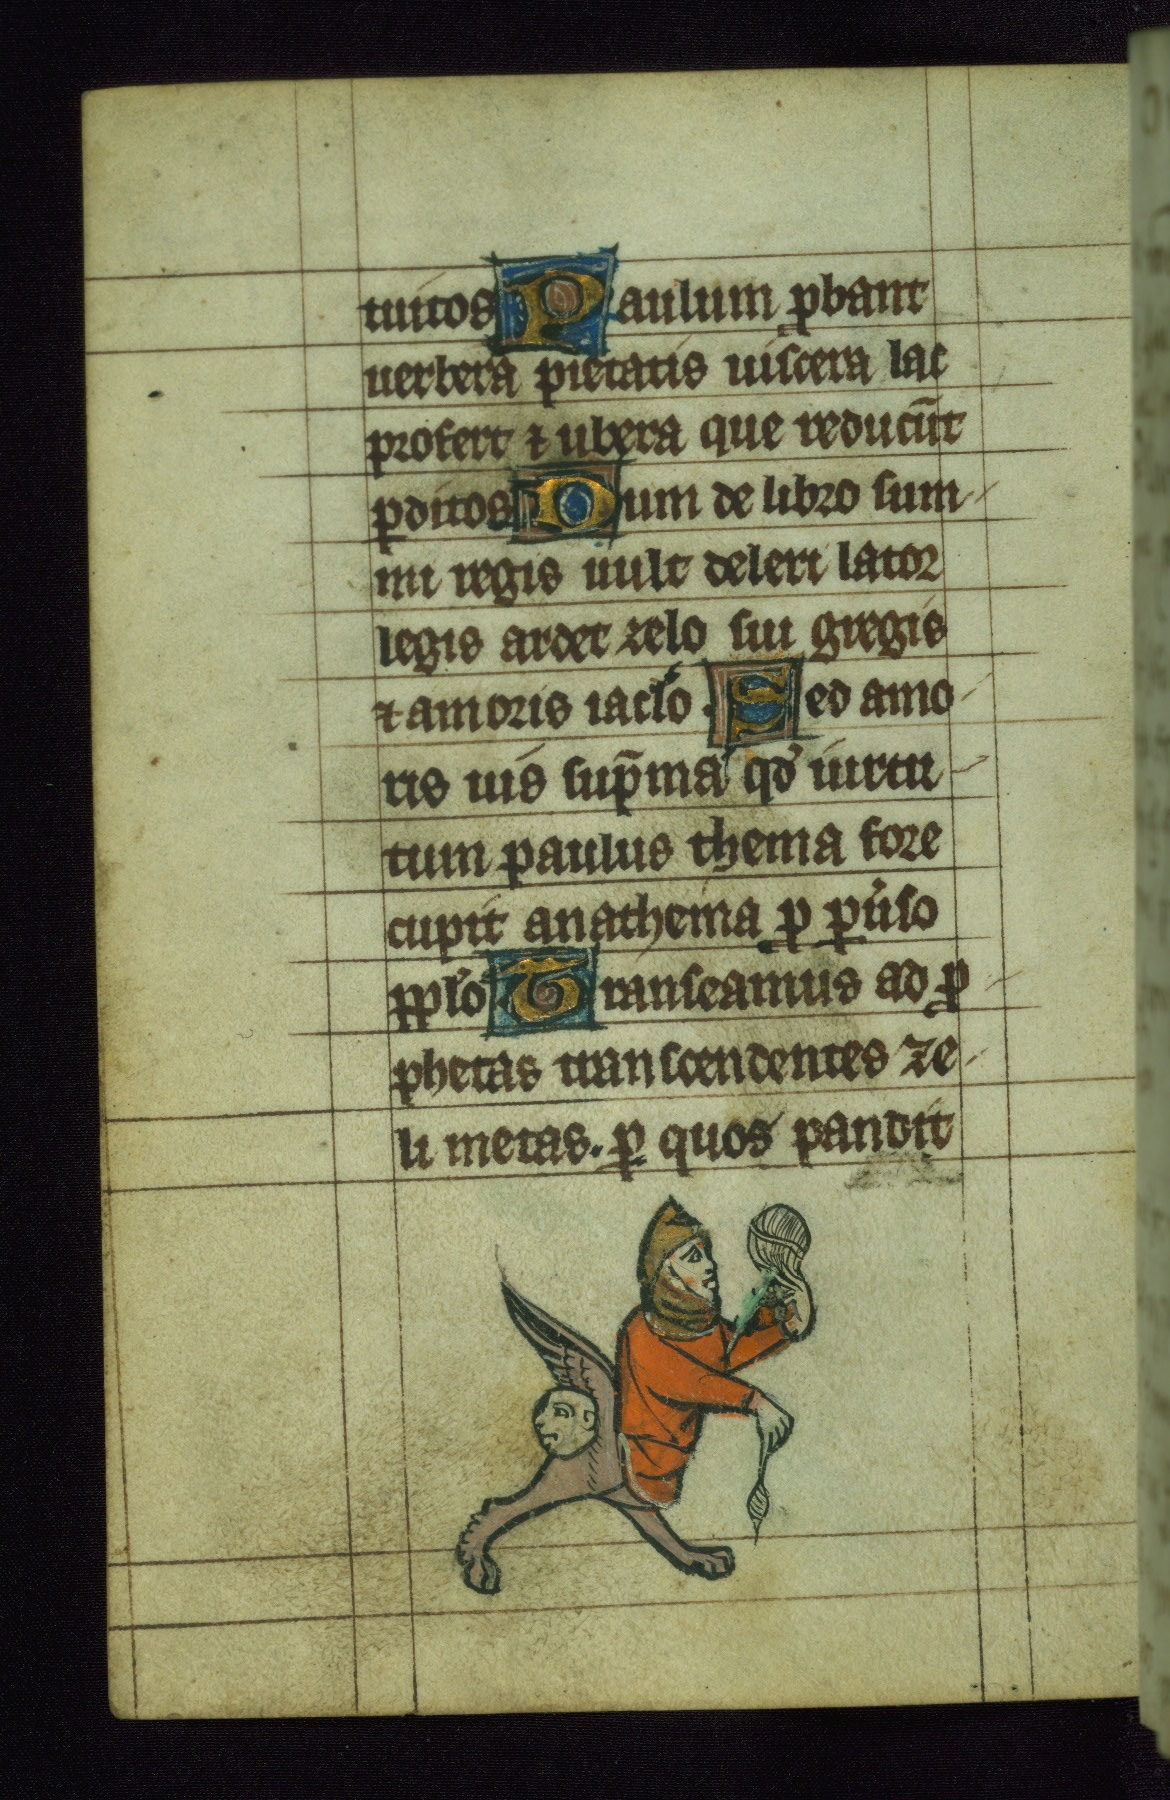 tuitos Paulum ꝓbant
uerbera pietatis uiscera lac
profert ⁊ ubera que reducūt
ꝑditos Dum de libro sum
mi regis uult deleri lator
legis ardet zelo sui gregis
⁊ amoris iacl̉o . Sed amo
ris uis sup̄ma qd̉ uirtu
tum paulus thema fore
cupit anathema ꝓ ꝑu̓so
ppl̉o Transeamus ad ꝓ
phetas transcendentes ze
li metas . ꝑ quos pandit